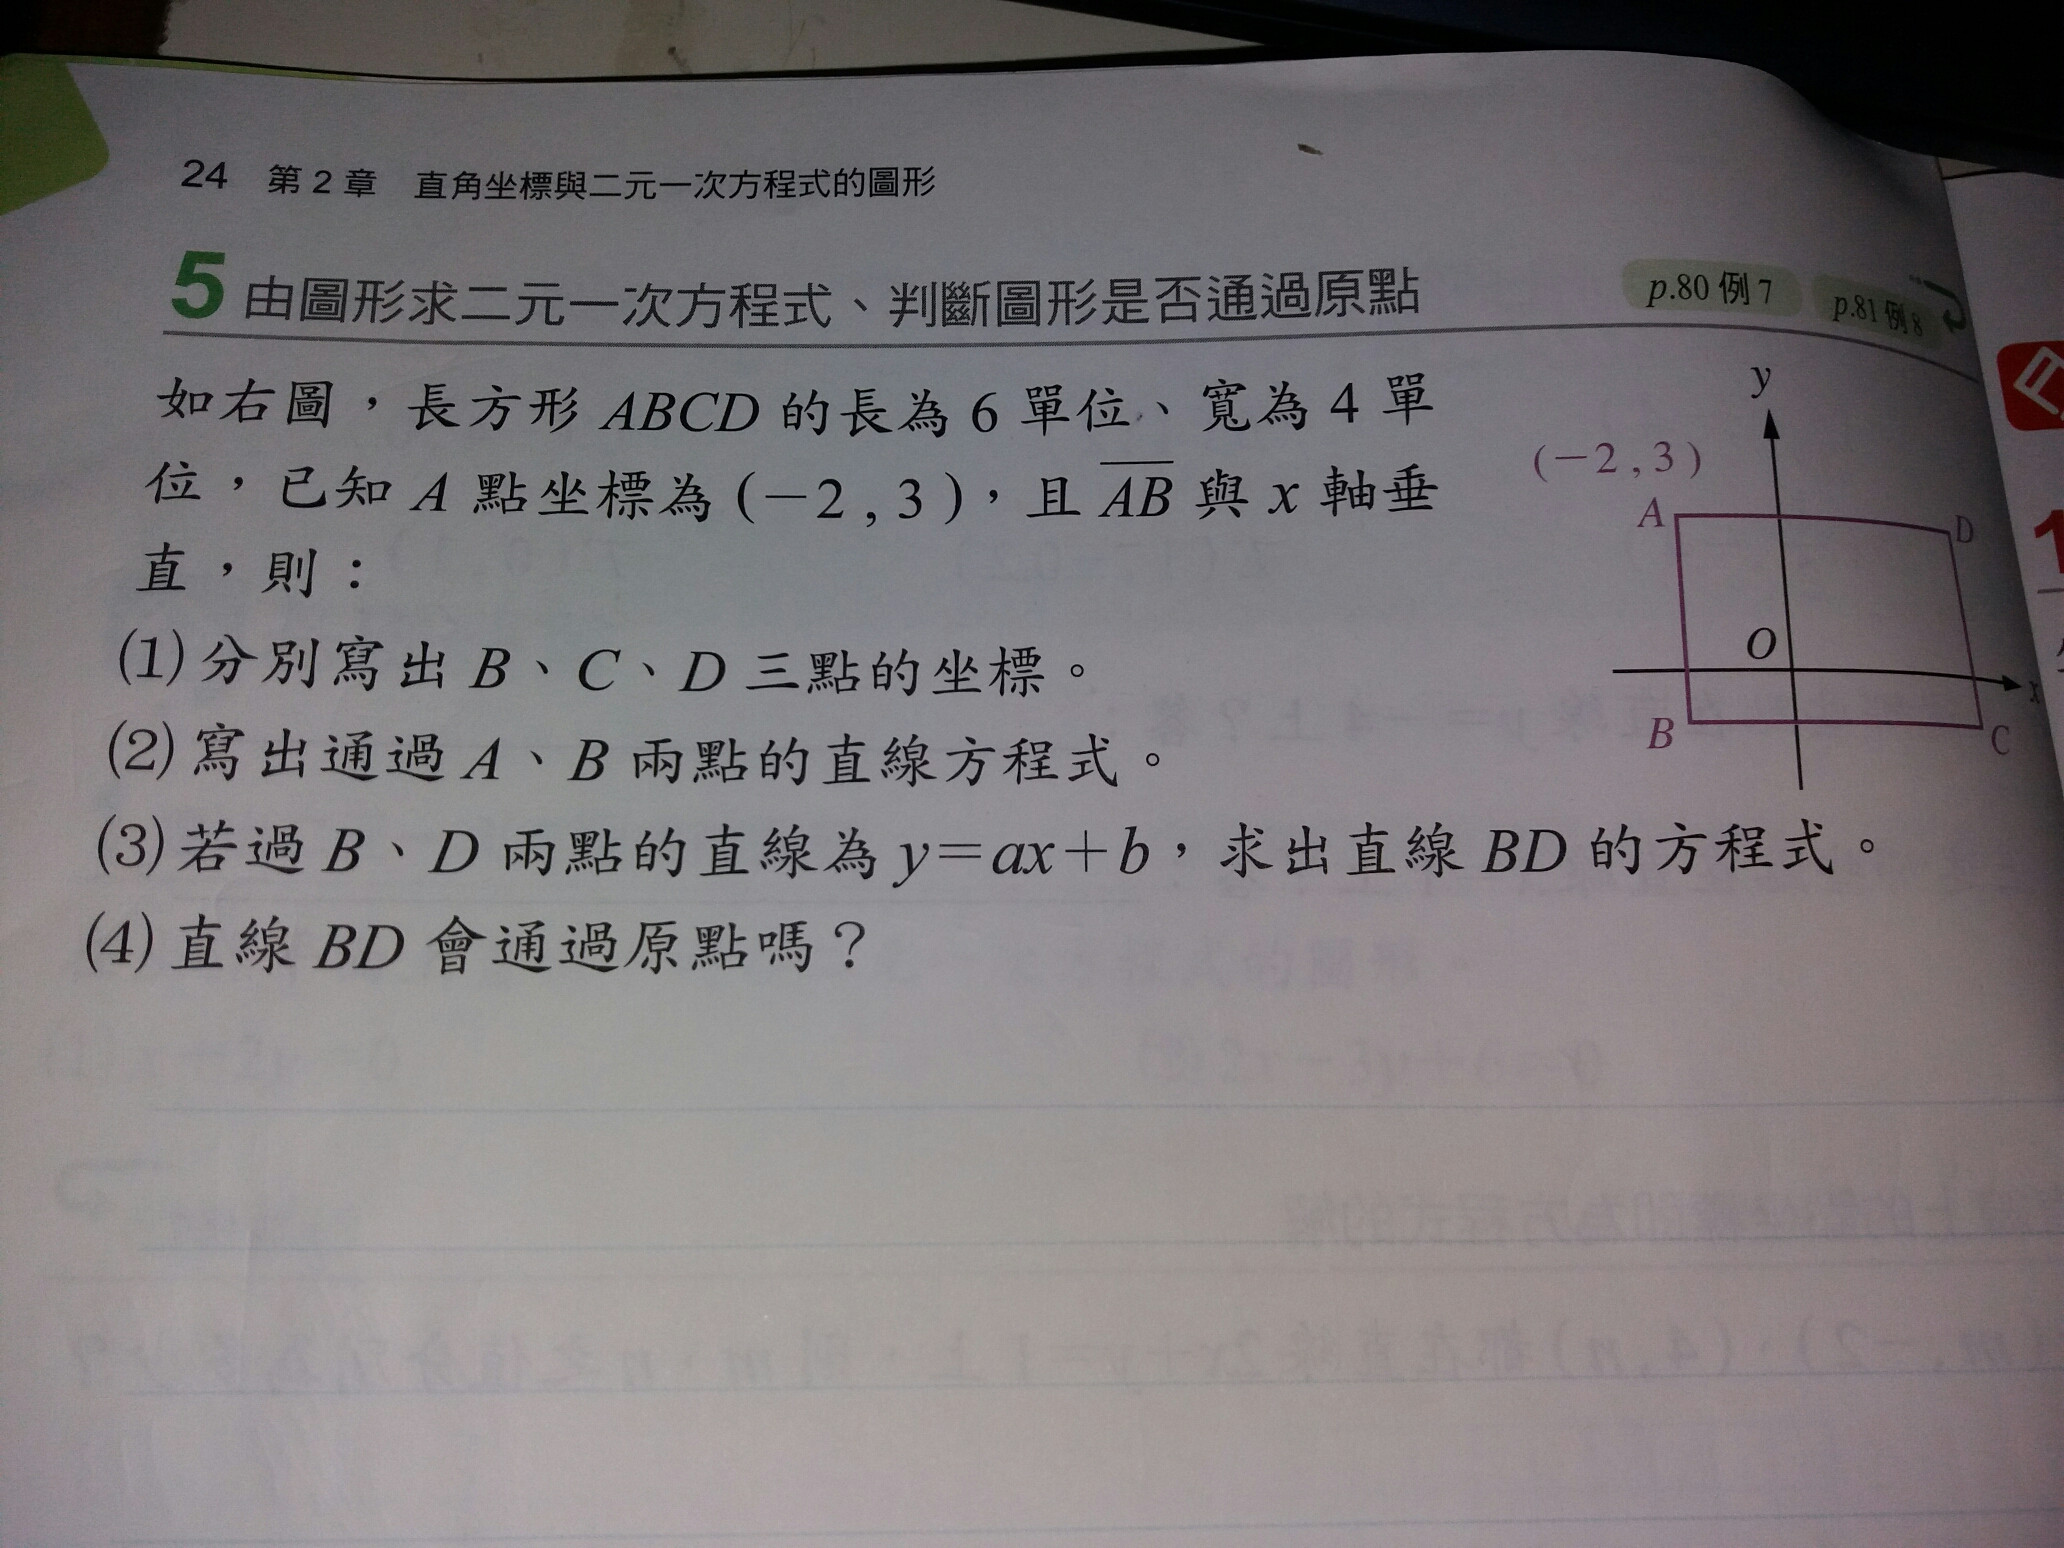 24 第2章 直角坐標與二元一次方程式的圖形
5 由圖形求二元一次方程式、判斷圖形是否通過原點
p.80 例7
p.81 例8
如右圖，長方形 ABCD 的長為 6 單位、寬為 4 單
位，已知 A 點坐標為 (−2 , 3 )，且 A̅B̅ 與 x 軸垂
直，則：
(1) 分別寫出 B、C、D 三點的坐標。
(2) 寫出通過 A、B 兩點的直線方程式。
(3) 若過 B、D 兩點的直線為 y=ax+b，求出直線 BD 的方程式。
(4) 直線 BD 會通過原點嗎？
y
(−2 , 3 )
A
D
O
x
B
C